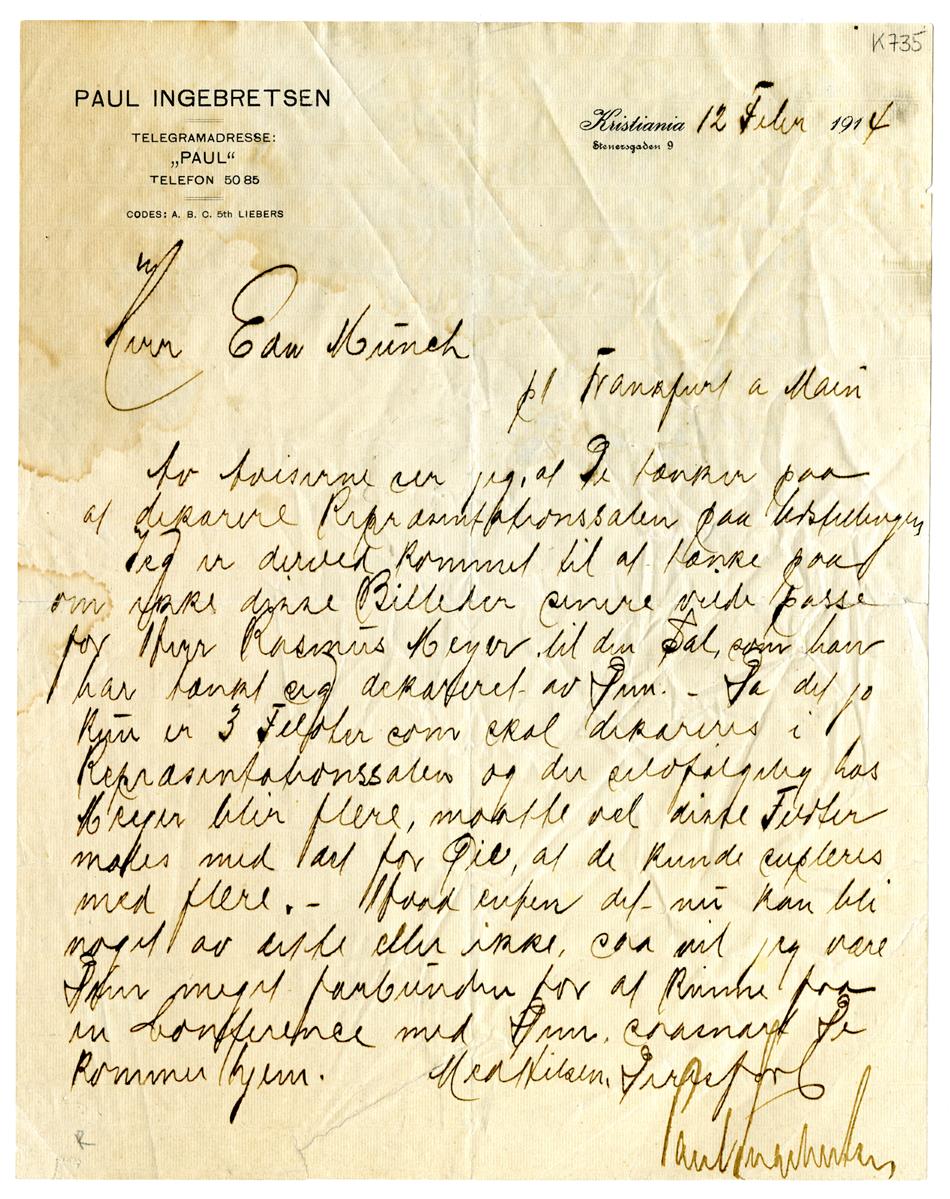 K735
PAUL INGEBRETSEN
TELEGRAMADRESSE:
„PAUL“
TELEFON 50 85
CODES: A. B. C. 5th LIEBERS
Kristiania 12 Febr 1914
Stenersgaden 9
Herr Edv Münch
pt Frankfurt a Main
Av Aviserne ser jeg, at De tænker paa
at dekorere Repræsentationssalen paa Udstillingen,
Jeg er derved kommet til at tænke paa
om ikke disse Billeder senere vilde passe
for Herr Rasmüs Meyer til den Sal, som han
har tænkt sig dekoreret av Dem. – Da det jo
kün er 3 Feldter som skal dekoreres i
Repræsentationssalen og der selvfølgelig hos
Meyer blir flere, maatte vel disse Feldter
males med det for Øie, at de kunde supleres
med flere. – Hvad enten det nü kan bli
noget av dette eller ikke, saa vil jeg være
Dem meget forbünden for at künne faa
en Conference med Dem, saasnart De
kommer hjem. Med Hilsen, Deres forb
Paul Ingebretsen
R